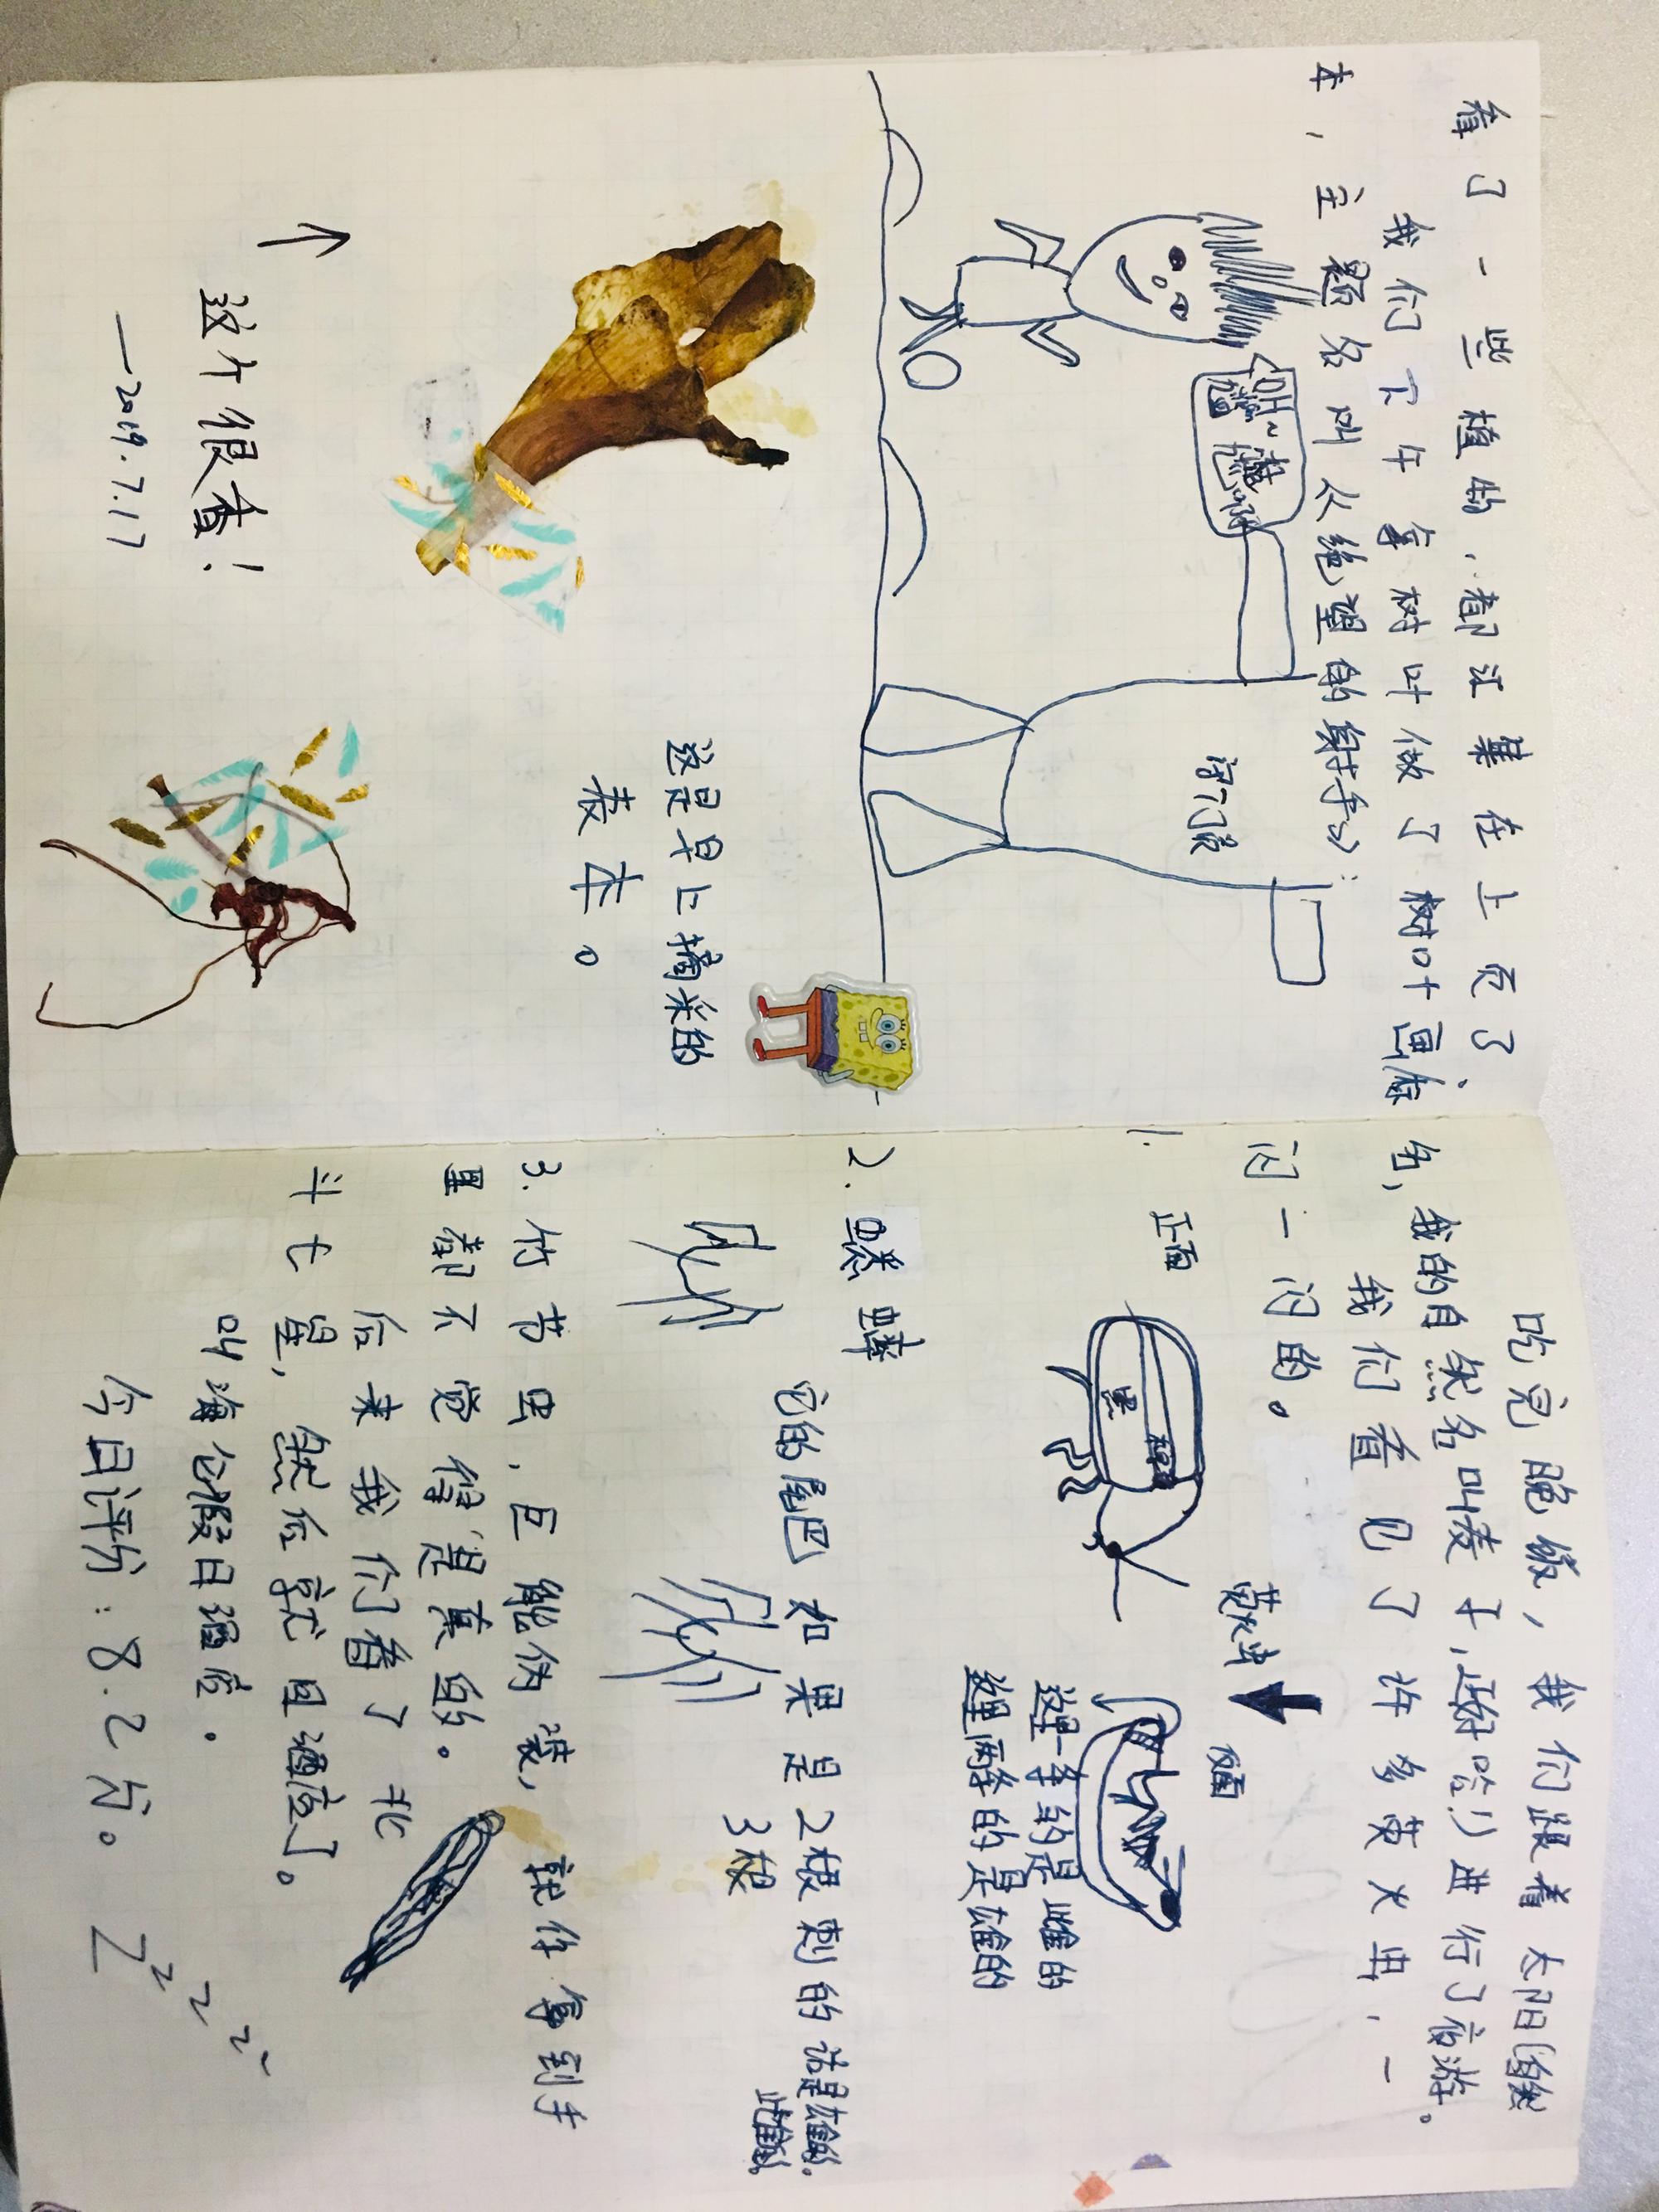 看了一些植物，都汇集在上页了，
我们下午拿树叶做了树叶画标
本，主题名叫《绝望的射手》：
守门员
这是早上摘采的
表本。
↑
这个很香！
—2019.7.17
吃完晚饭，我们跟着太阳(自然
名，我的自然名叫麦子，正好哈！)进行了夜游。
我们看见了许多萤火虫，一
闪一闪的。
1.
正面
黑
萤火虫
夜面
这里一条的是雌的
这里两条的是雄的
2. 蟋蟀
它的尾巴如果是2根刺的话是雄的。
3根 雌的。
3. 竹节虫，巨能伪装，就件拿到手
里都不觉得是真的。
后来我们看了北
斗七星，然后就回酒店了。
叫海伦假日酒店。
今日评分：8.2分。
Zzzz